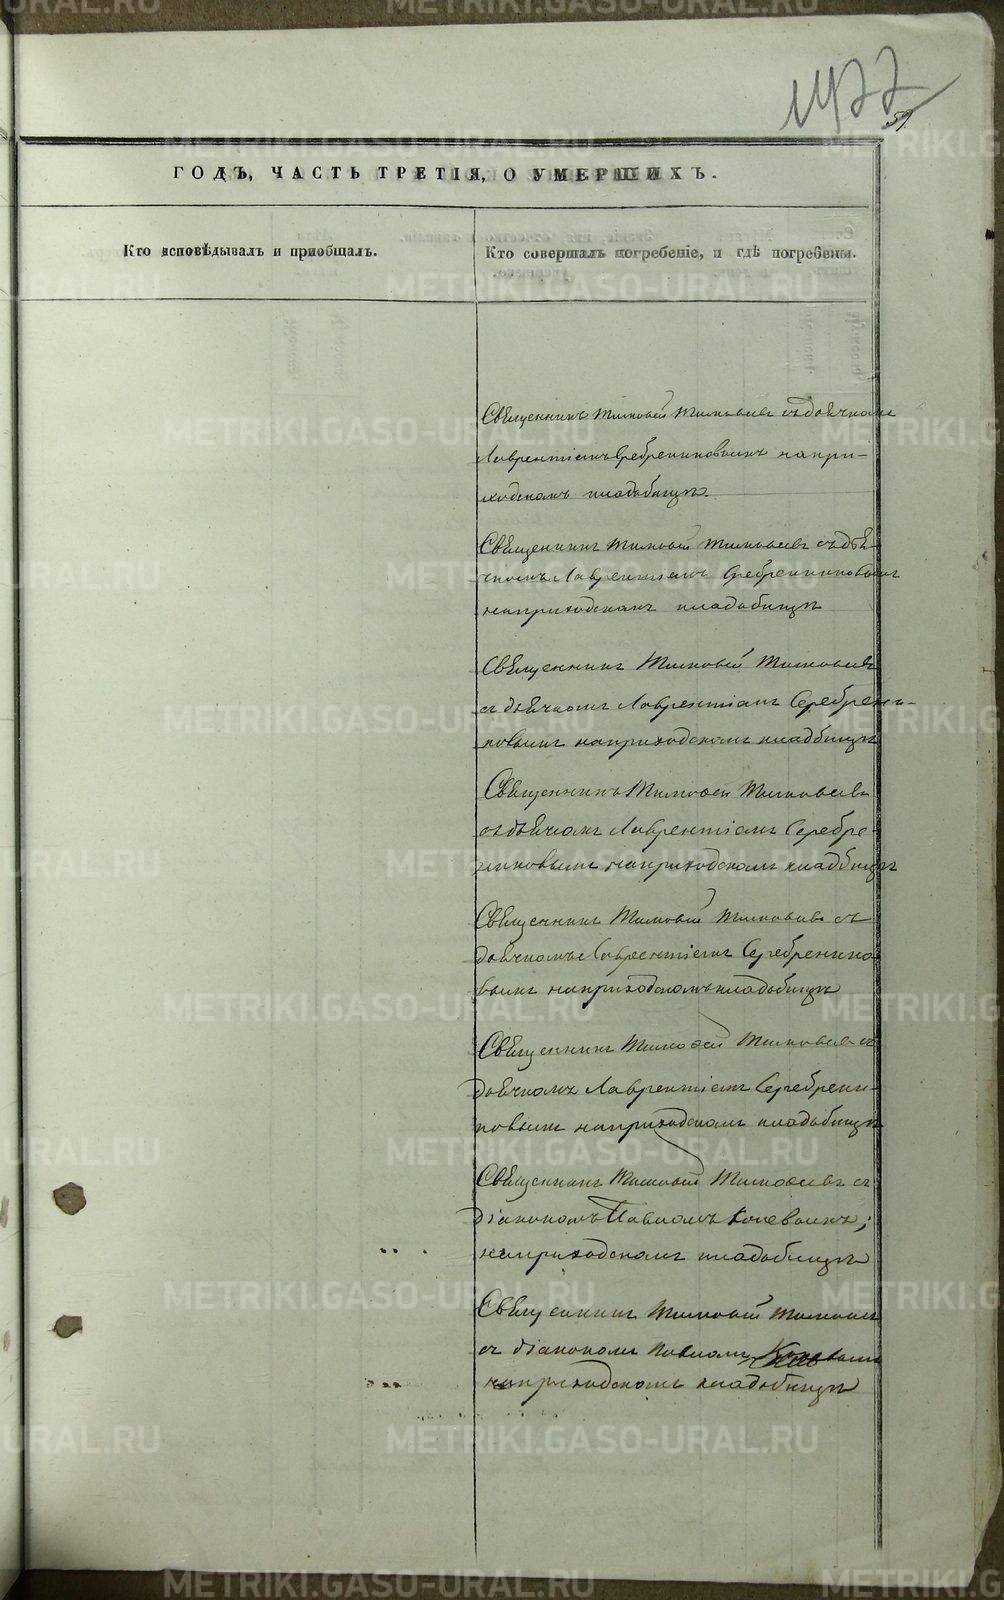 1477
59.
ГОДЪ, ЧАСТЬ ТРЕТІЯ, О УМЕРШИХЪ.
Кто исповѣдывалъ и приобщалъ.
Кто совершалъ погребеніе, и гдѣ погребены.
Священникъ Тимоѳей Тимоѳеевъ съ дьячкомъ
Лаврентіемъ Сребрениковымъ на при-
ходскомъ кладбищѣ.
Священникъ Тимоѳей Тимоѳеевъ съ дья-
чкомъ Лаврентіемъ Сребрениковымъ
на приходскомъ кладбищѣ
Священникъ Тимоѳей Тимоѳеевъ
съ дьячкомъ Лаврентіемъ Серебрен-
ковымъ на приходскомъ кладбищѣ
Священникъ Тимоѳей Тимоѳеевъ
съ дьячкомъ Лаврентіемъ Серебре-
никовымъ на приходскомъ кладбищѣ
Священникъ Тимоѳей Тимоѳеевъ съ
дьячкомъ Лаврентіемъ Серебренико-
вымъ на приходскомъ кладбищѣ
Священникъ Тимоѳей Тимоѳеевъ съ
дьячкомъ Лаврентіемъ Серебрени-
ковымъ на приходскомъ кладбищѣ
Священникъ Тимоѳей Тимоѳеевъ съ
діакономъ Павломъ
на приходскомъ кладбищѣ
Священникъ Тимоѳей
съ діакономъ Павломъ
на приходскомъ кладбищѣ
METRIKI.GASO-URAL.RU